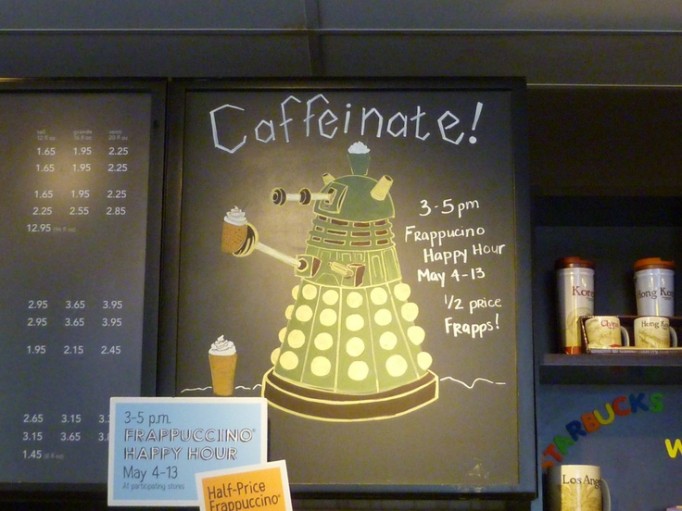 Caffeinate!
3-5pm
Frappucino
Happy Hour
May 4-13
1/2 price
Frapps!
tall grande venti
1.65 1.95 2.25
1.65 1.95 2.25
1.65 1.95 2.25
2.25 2.55 2.85
12.95
2.95 3.65 3.95
2.95 3.65 3.95
1.95 2.15 2.45
2.65 3.15 3.
3.15 3.65 3.
1.45
3-5 p.m.
FRAPPUCCINO®
HAPPY HOUR
May 4-13
At participating stores
Half-Price
Frappuccino®
Hong Kong
Hong Kong
STARBUCKS
W
Los Ang